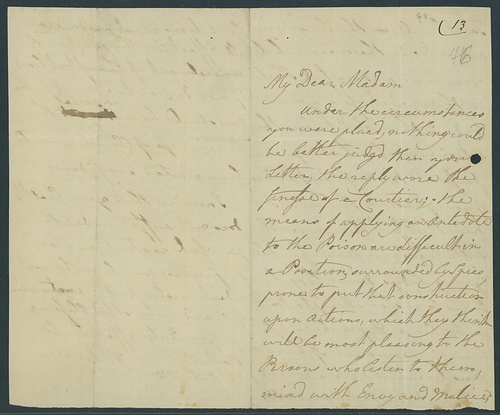 13
46
My Dear Madam
under the circumstances
you ware placed, nothing could
be better judgd then your
Letter, the reply wore the
finesse of a Courtier; the
means of applying an Antidote
to the Poison are difficult in
a Position, surrounded by Spies,
prone to put that construction
upon Actions, which they think
will be most pleasing to the
Persons who listen to them,
mind with Envy and Malice;